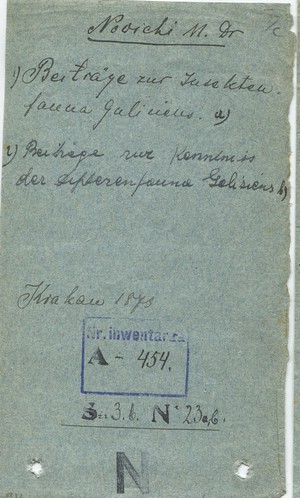 Novicki M. Dr
1) Beiträge zur Insekten-
fauna Galiziens. a)
2) Beiträge zur Kenntniss
der Dipterenfauna Galiziens b)
Krakau 1873
Nr. inwentarza
A - 454.
3.b. N 23a,b.
N